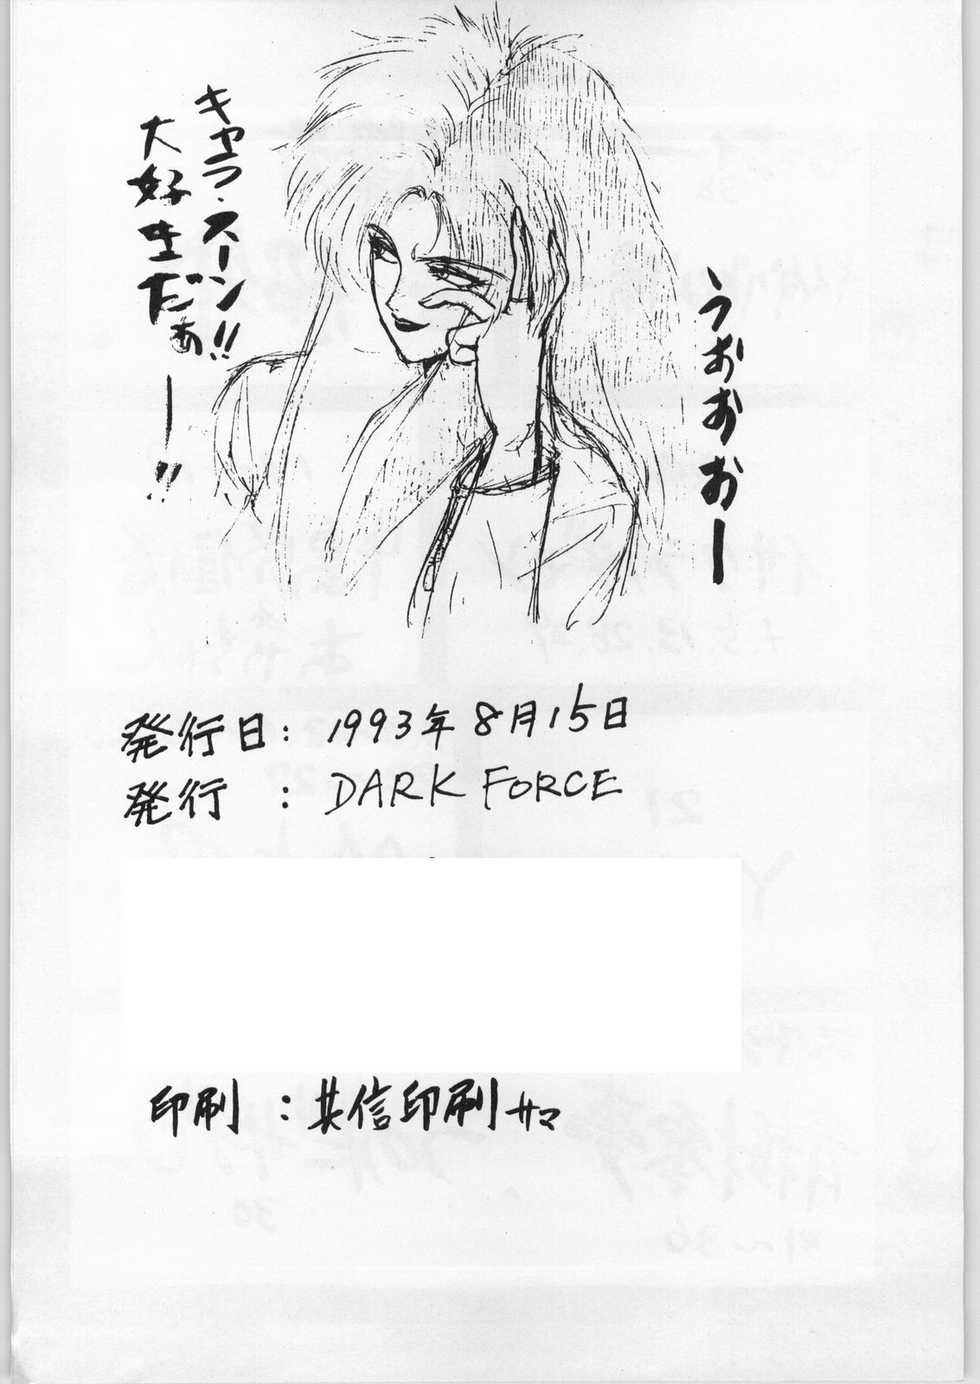 うおおおー
キャラ・スーン!!
大好きだぁー!!
発行日：1993年8月15日
発行　：DARK FORCE
印刷　：共信印刷サマ